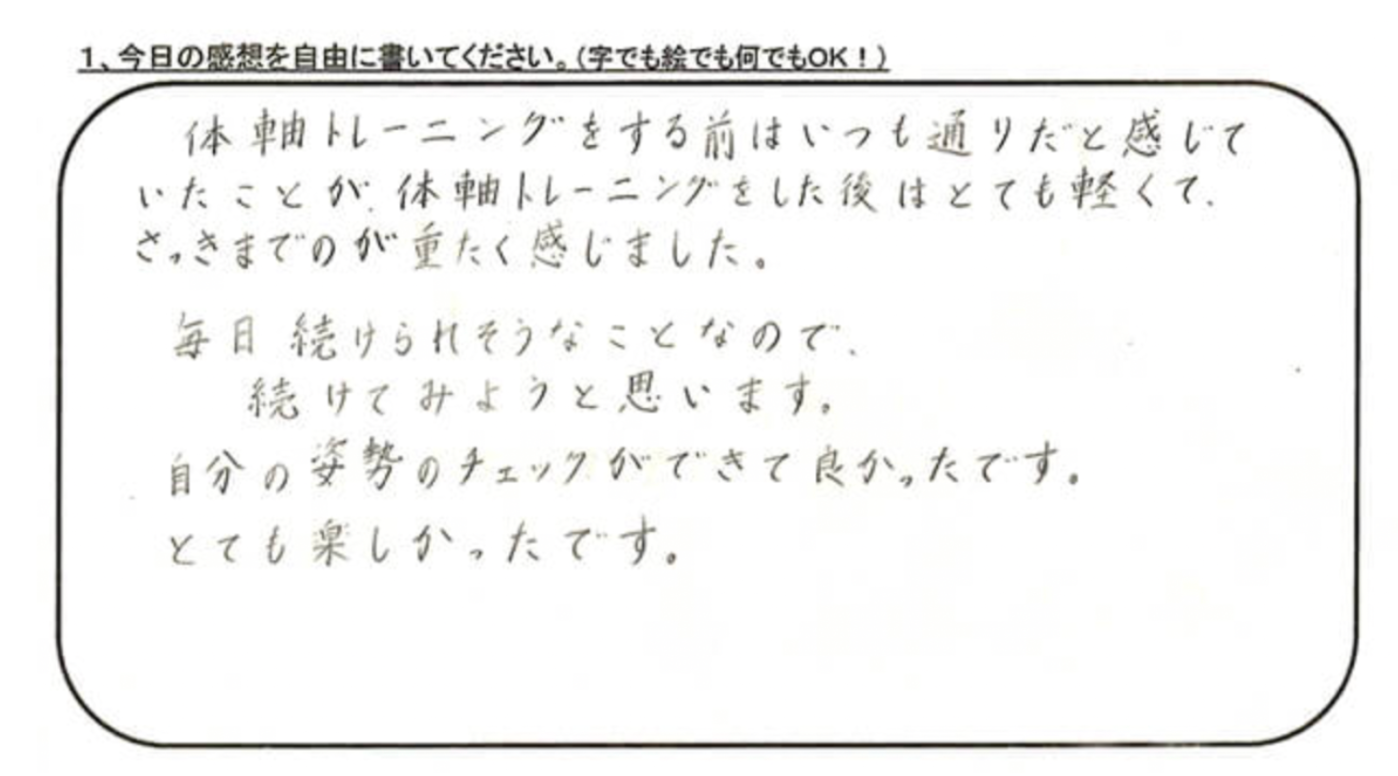 1、今日の感想を自由に書いてください。(字でも絵でも何でもOK！)
体軸トレーニングをする前はいつも通りだと感じて
いたことが、体軸トレーニングをした後はとても軽くて、
さっきまでのが重たく感じました。
毎日続けられそうなことなので、
続けてみようと思います。
自分の姿勢のチェックができて良かったです。
とても楽しかったです。